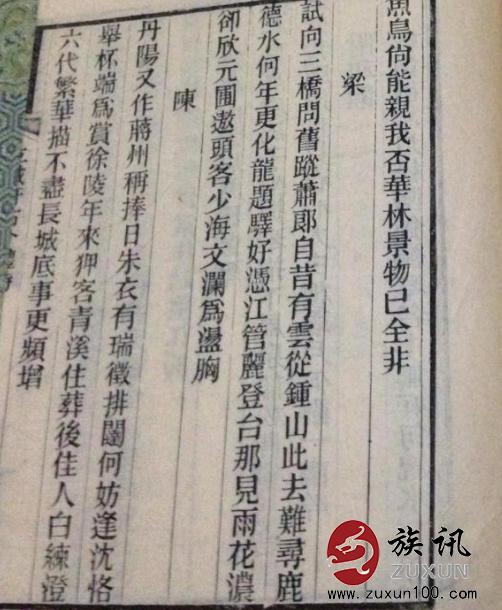 魚鳥尙能親我否華林景物已全非
梁
試向三橋問舊蹤蕭郞自昔有雲從鍾山此去難尋鹿
德水何年更化龍題驛好憑江管麗登台那見雨花濃
卻欣元圃遨頭客少海文瀾爲盪胸
陳
丹陽又作蔣州稱捧日朱衣有瑞徵排闥何妨逢沈恪
舉杯端爲賞徐陵年來狎客青溪住葬後佳人白練澄
六代繁華描不盡長城底事更頻增
族讯
ZUXUN
www.zuxun100.com